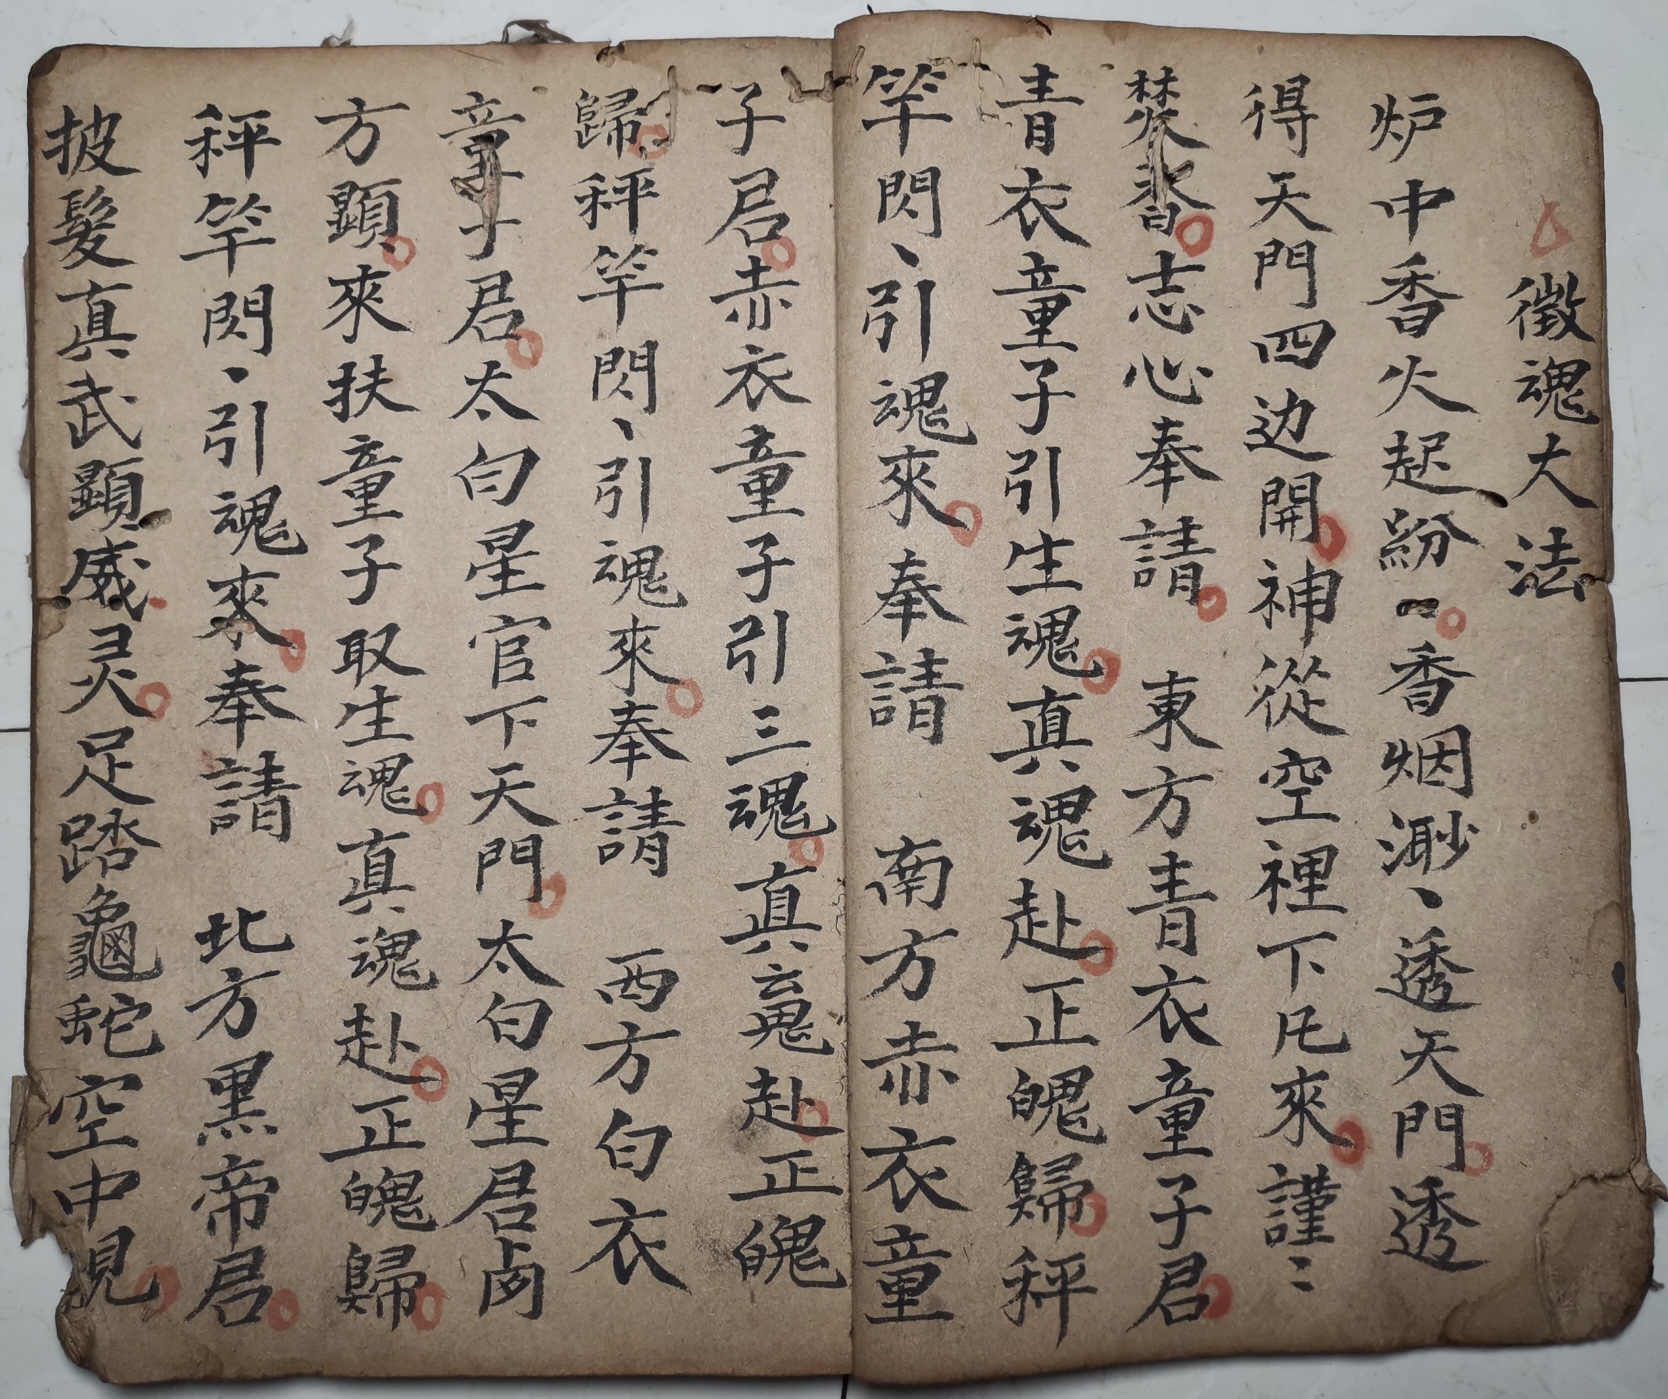 徵魂大法
炉中香火起紛〻香烟渺丶透天門透
得天門四边開神從空裡下凡來謹〻
焚香志心奉請 東方青衣童子君
青衣童子引生魂真魂赴正魄歸秤
竿閃丶引魂來奉請 南方赤衣童
子君赤衣童子引三魂真魂赴正魄
歸秤竿閃丶引魂來奉請 西方白衣
童子君太白星官下天門太白星君
方顯來扶童子取生魂真魂赴正魄歸
秤竿閃丶引魂來奉請 北方黑帝君
披髮真武顯威灵足踏龜蛇空中現